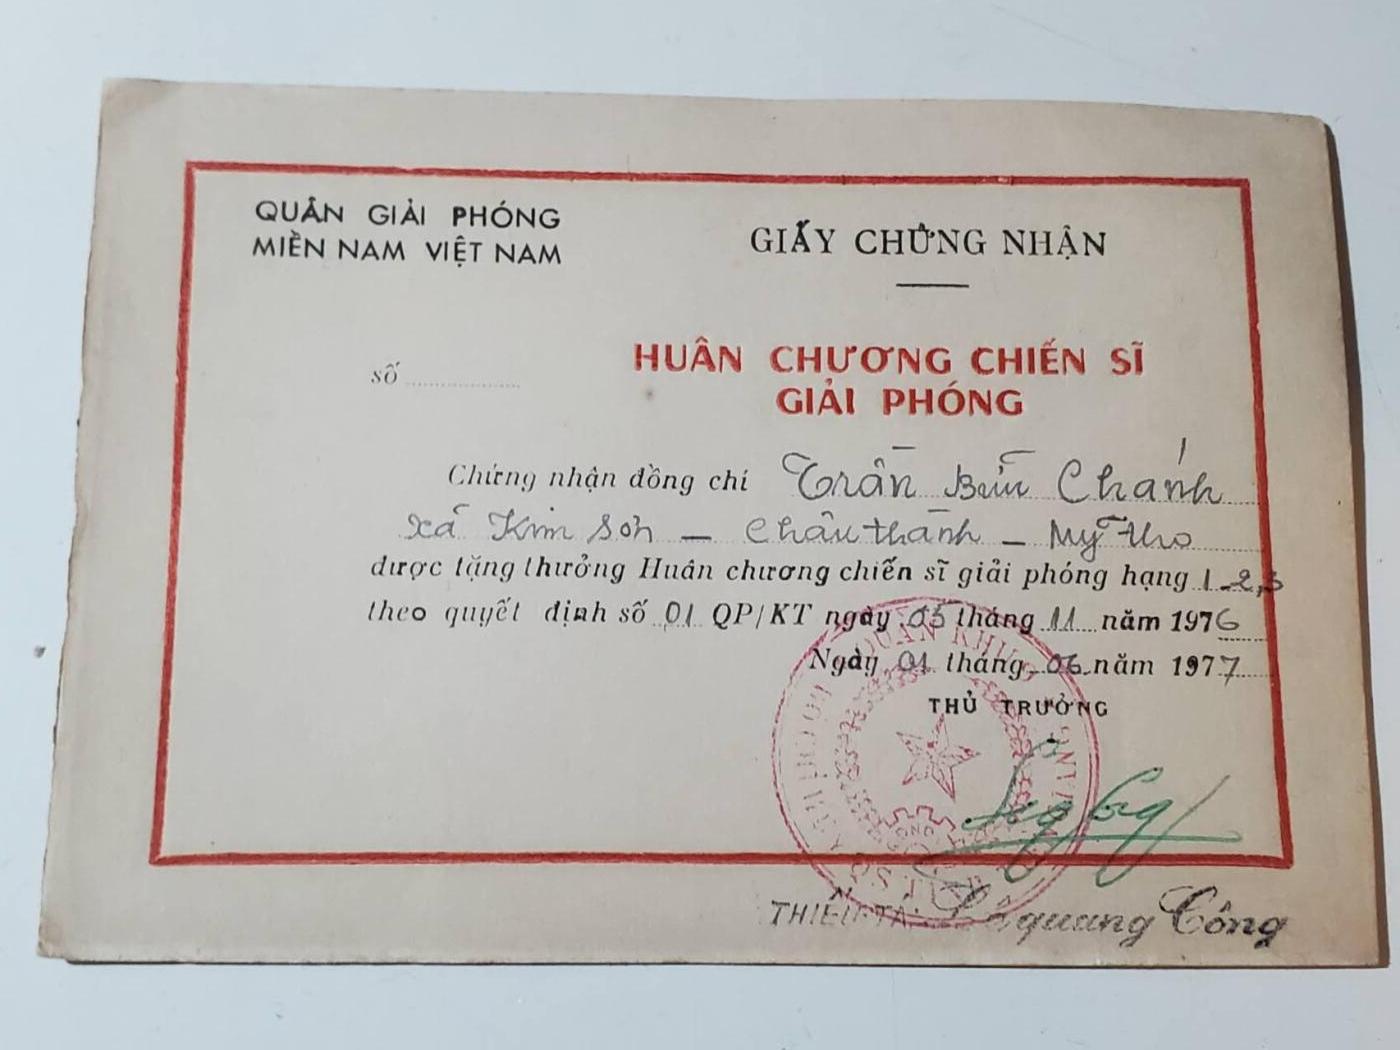 QUÂN GIẢI PHÓNG
MIỀN NAM VIỆT NAM
GIẤY CHỨNG NHẬN
số
HUÂN CHƯƠNG CHIẾN SĨ
GIẢI PHÓNG
Chứng nhận đồng chí Trần Bửu Chánh
xã Kim Sơn - Châu thành - Mỹ tho
được tặng thưởng Huân chương chiến sĩ giải phóng hạng 1-2,3
theo quyết định số 01 QP/KT ngày 05 tháng 11 năm 1976
Ngày 01 tháng 06 năm 1977
THỦ TRƯỞNG
QUÂN KHU
THIẾU TÁ: Lê quang Công